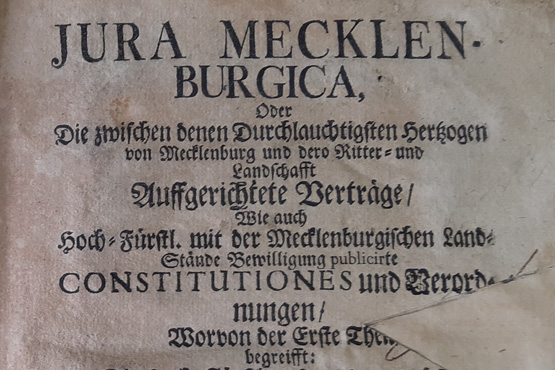 JURA MECKLEN-
BURGICA,
Oder
Die zwischen denen Durchlauchtigsten Hertzogen
von Mecklenburg und dero Ritter- und
Landschafft
Auffgerichtete Verträge/
Wie auch
Hoch-Fürstl. mit der Mecklenburgischen Land-
Stände Bewilligung publicirte
CONSTITUTIONES und Verord-
nungen/
Worvon der Erste
begreifft: